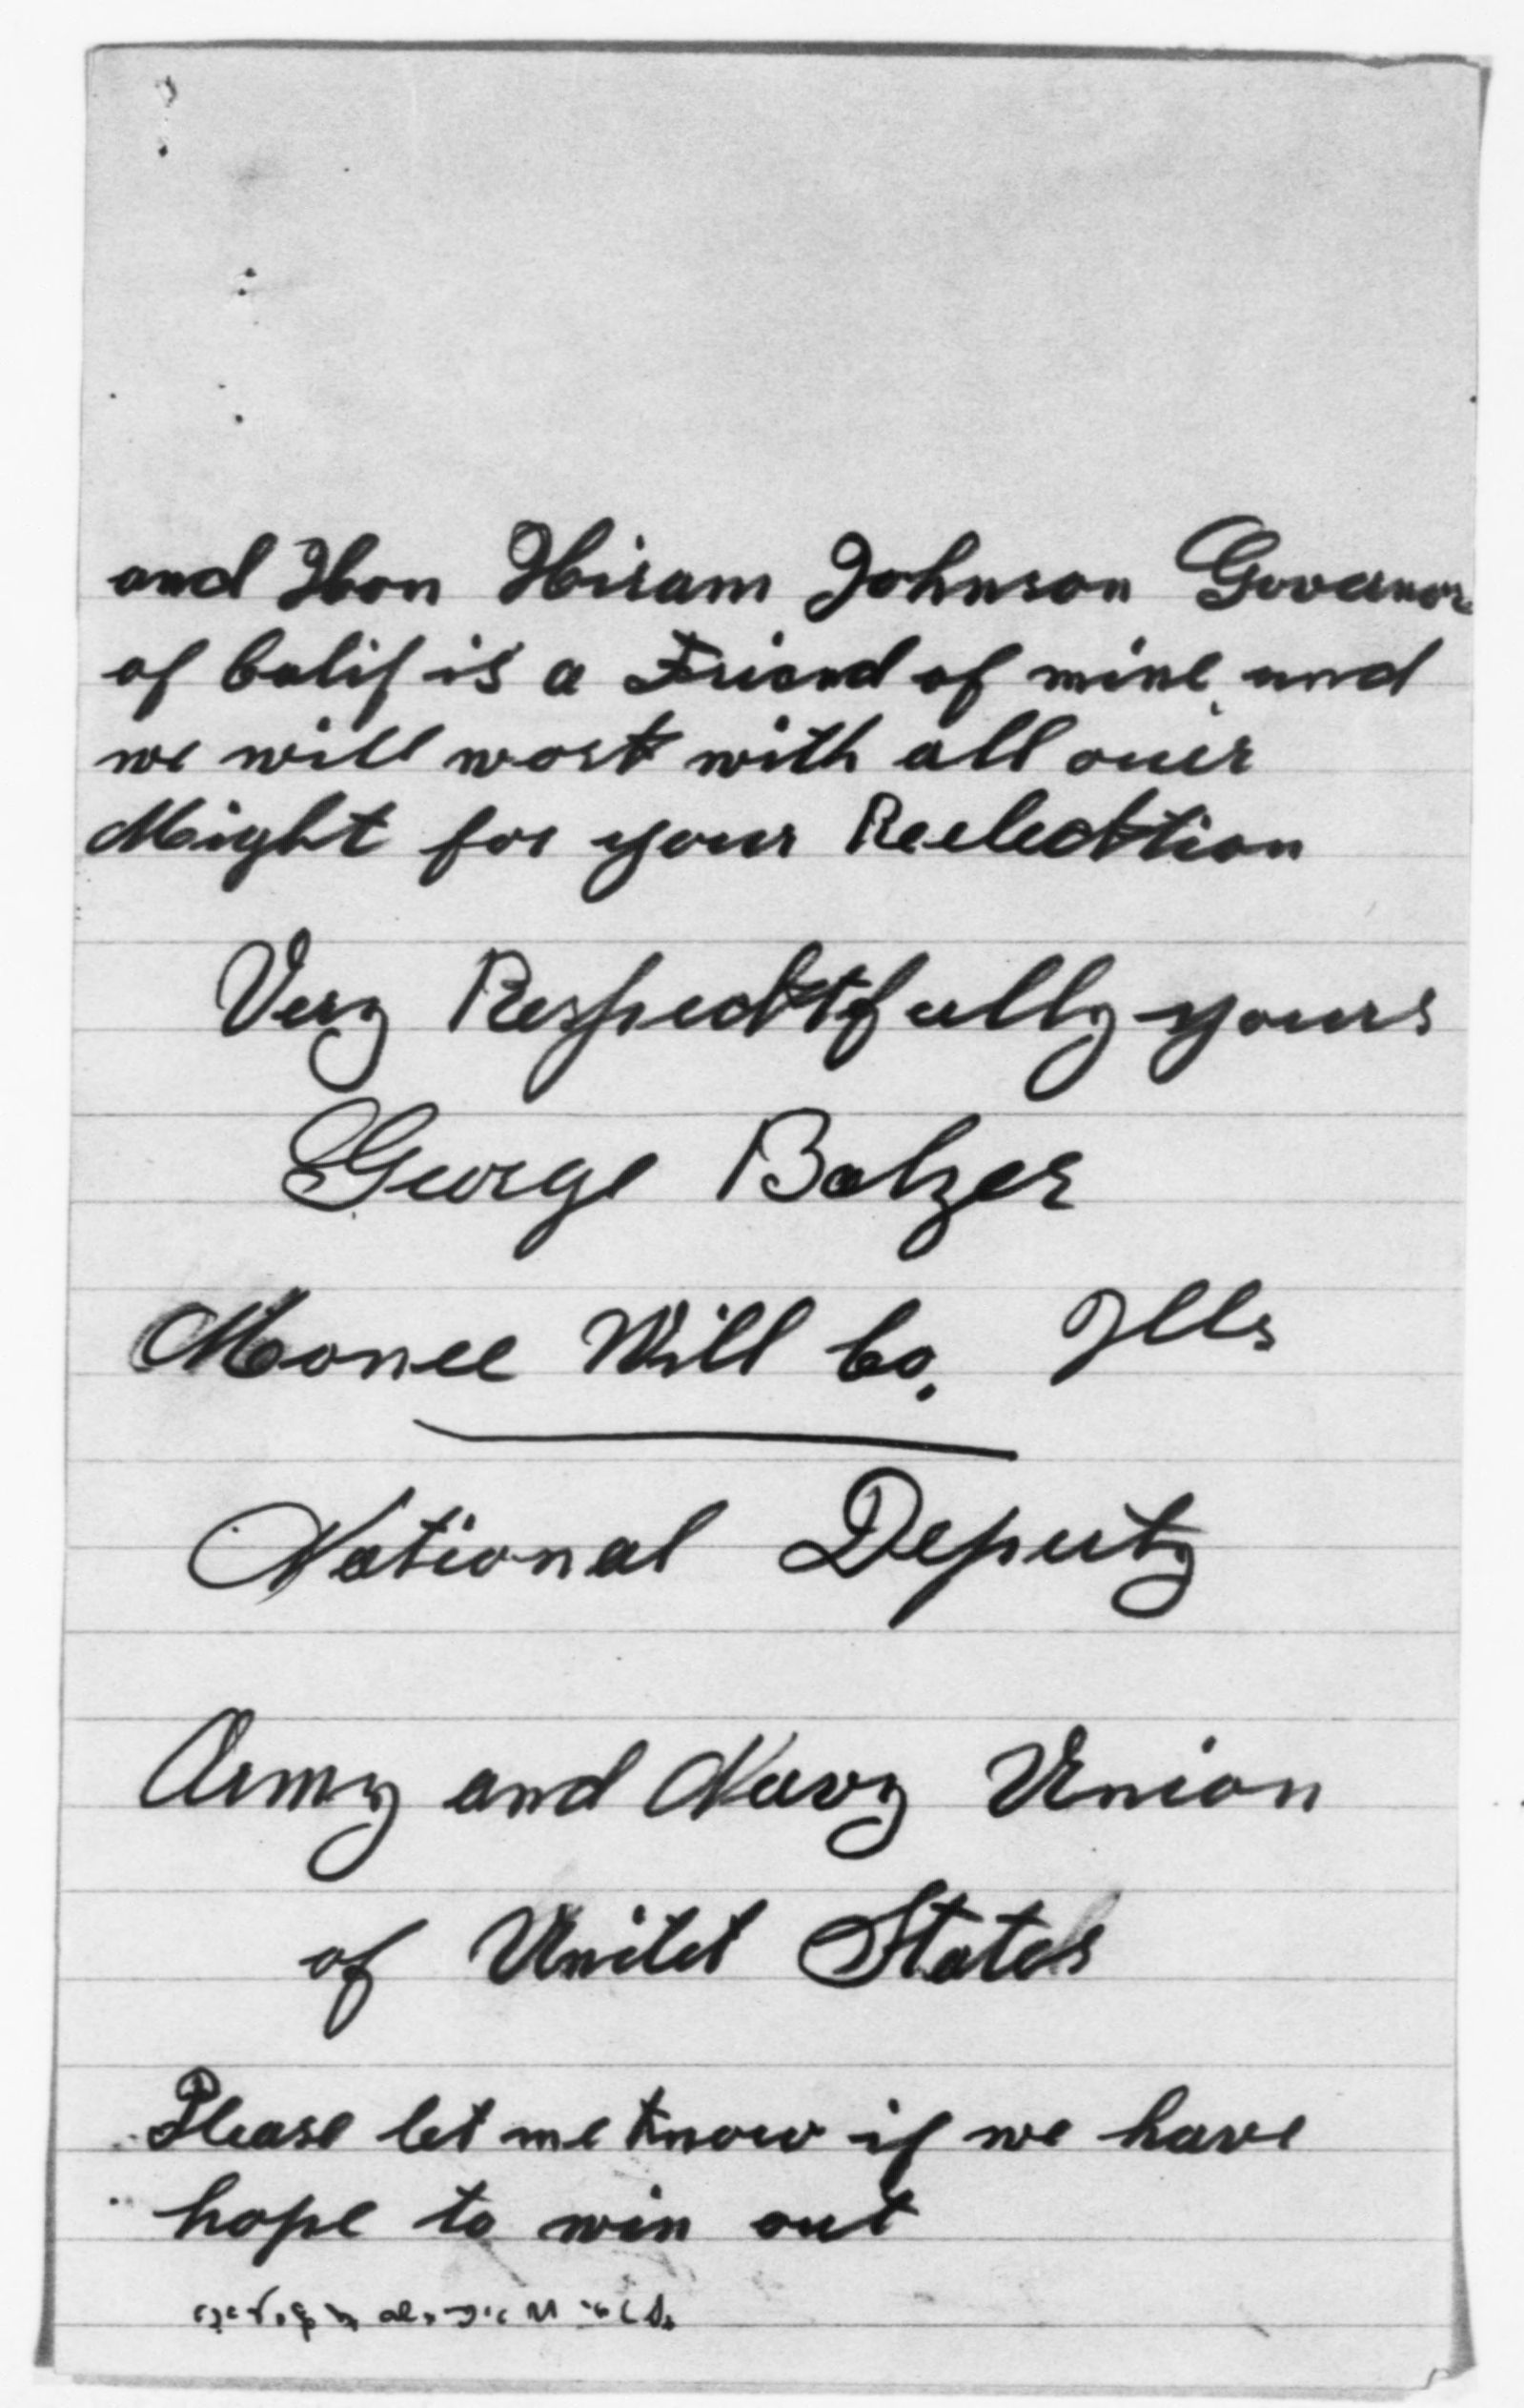 and Hon Hiram Johnson Governor
of Calif is a Friend of mine and
we will work with all ouer
Might for your Reelecktion
Very Respecktfully yours
George Balzer
Monee Will Co. Ills
National Deputy
Army and Navy Union
of Unitet States
Please let me know if we have
hope to win out